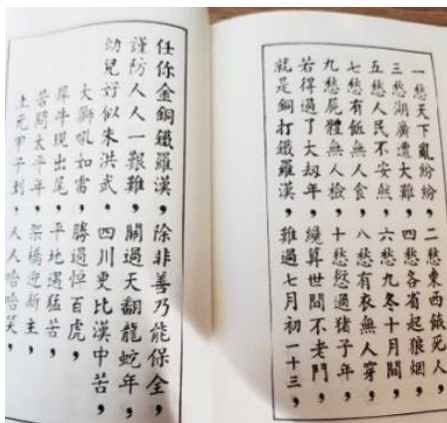 一愁天下亂紛紛，二愁東西餓死人，
三愁湖廣遭大難，四愁各省起狼烟，
五愁人民不安然，六愁九冬十月間，
七愁有飯無人食，八愁有衣無人穿，
九愁屍體無人檢，十愁過猪子年，
若得過了大刼年，纔算世間不老門，
就是銅打鐵羅漢，難過七月初一十三，
任你金銅鐵羅漢，除非善乃能保全，
謹防人人一艱難，關過天翻龍蛇年，
幼兒好似朱洪武，四川更比漢中苦，
大獅吼如雷，勝過悼百虎，
犀牛現出尾，平地遇猛苦，
若問太平年，架橋迎新主，
上元甲子到，人人哈哈笑，